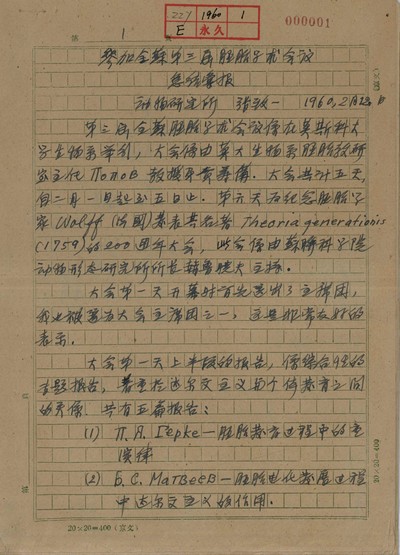 227 1960 1
E 永久
000001
第 1
参加全苏第三届胚胎学术会议
总结汇报
动物研究所 张致一 1960,2月23日
第三届全苏胚胎学术会议系在莫斯科大
学生物系举行,大会系由莫大生物系胚胎教研
室主任 Попов 教授所筹备。大会共计五天,
自二月一日起至五日止。第六天为纪念胚胎学
家 Wolff (德国)发表其名著 Theoria generationis
(1759)的200周年大会,此会系由苏联科学院
动物形态研究所所长赫鲁晓夫主持。
大会第一天开幕时首先选出了主席团,
我也被选为大会主席团之一,这是非常友好的
表示。
大会第一天上半段的报告,系综合性的
专题报告,着重于达尔文主义与个体发育之间
的关系。共有五篇报告:
(1) П. Я. Гепке—胚胎发育过程中的重
演律
(2) Б. С. Матвеев—胚胎进化发展过程
中达尔文主义的作用。
20×20=400
20×20=400 (京文)